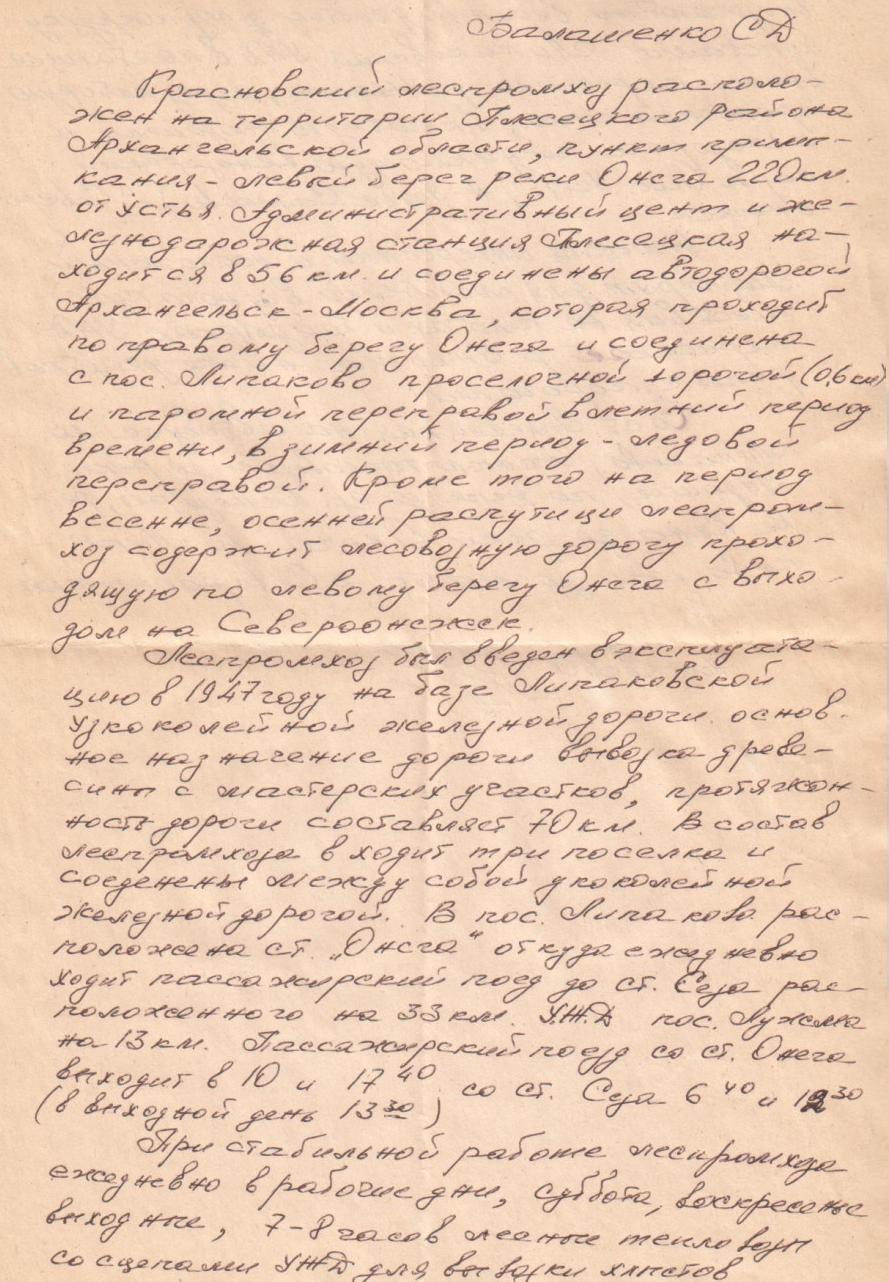 Балашенко СД
Красновский леспромхоз располо-
жен на территории Плесецкого района
Архангельской области, пункт примы-
кания - левый берег реки Онега 220 км.
от устья. Административный цент и же-
лезнодарожная станция Плесецкая на-
ходится в 56 км. и соединены автодорогой
Архангельск - Москва, которая проходит
по правому берегу Онега и соединена
с пос. Липаково проселочной дорогой (0,6 км)
и паромной переправой в летний период
времени, в зимний период - ледовой
переправой. Кроме того на период
весенне, осенней распутици леспром-
хоз содержит лесовозную дорогу прохо-
дящую по левому берегу Онега с выхо-
дом на Североонежск.
Леспромхоз был введен в эксплуата-
цию в 1947 году на базе Липаковской
узкоколейной железной дороги. основ-
ное назначение дороги вывозка древе-
сины с мастерских участков, протяжон-
ность дороги составляет 70 км. В состав
леспромхоза входит три поселка и
соеденены между собой укоколейной
железной дорогой. В пос. Липаково рас-
положена ст. „Онега“ откуда ежедневно
ходит пассажирский поезд до ст. Сеза рас-
положенного на 33 км. У.Ж.Д пос. Лужма
на 13 км. Пассажирский поезд со ст. Онега
выходит в 10 и 17 40 со ст. Сеза 6 40 и 12 30
(в выходной день 13 30)
При стабильной работе леспромхоза
ежедневно в рабочие дни, суббота, воскресенье
выходные, 7-8 часов лесные тепловозы
со сцепами УЖД для вывозки хлыстов